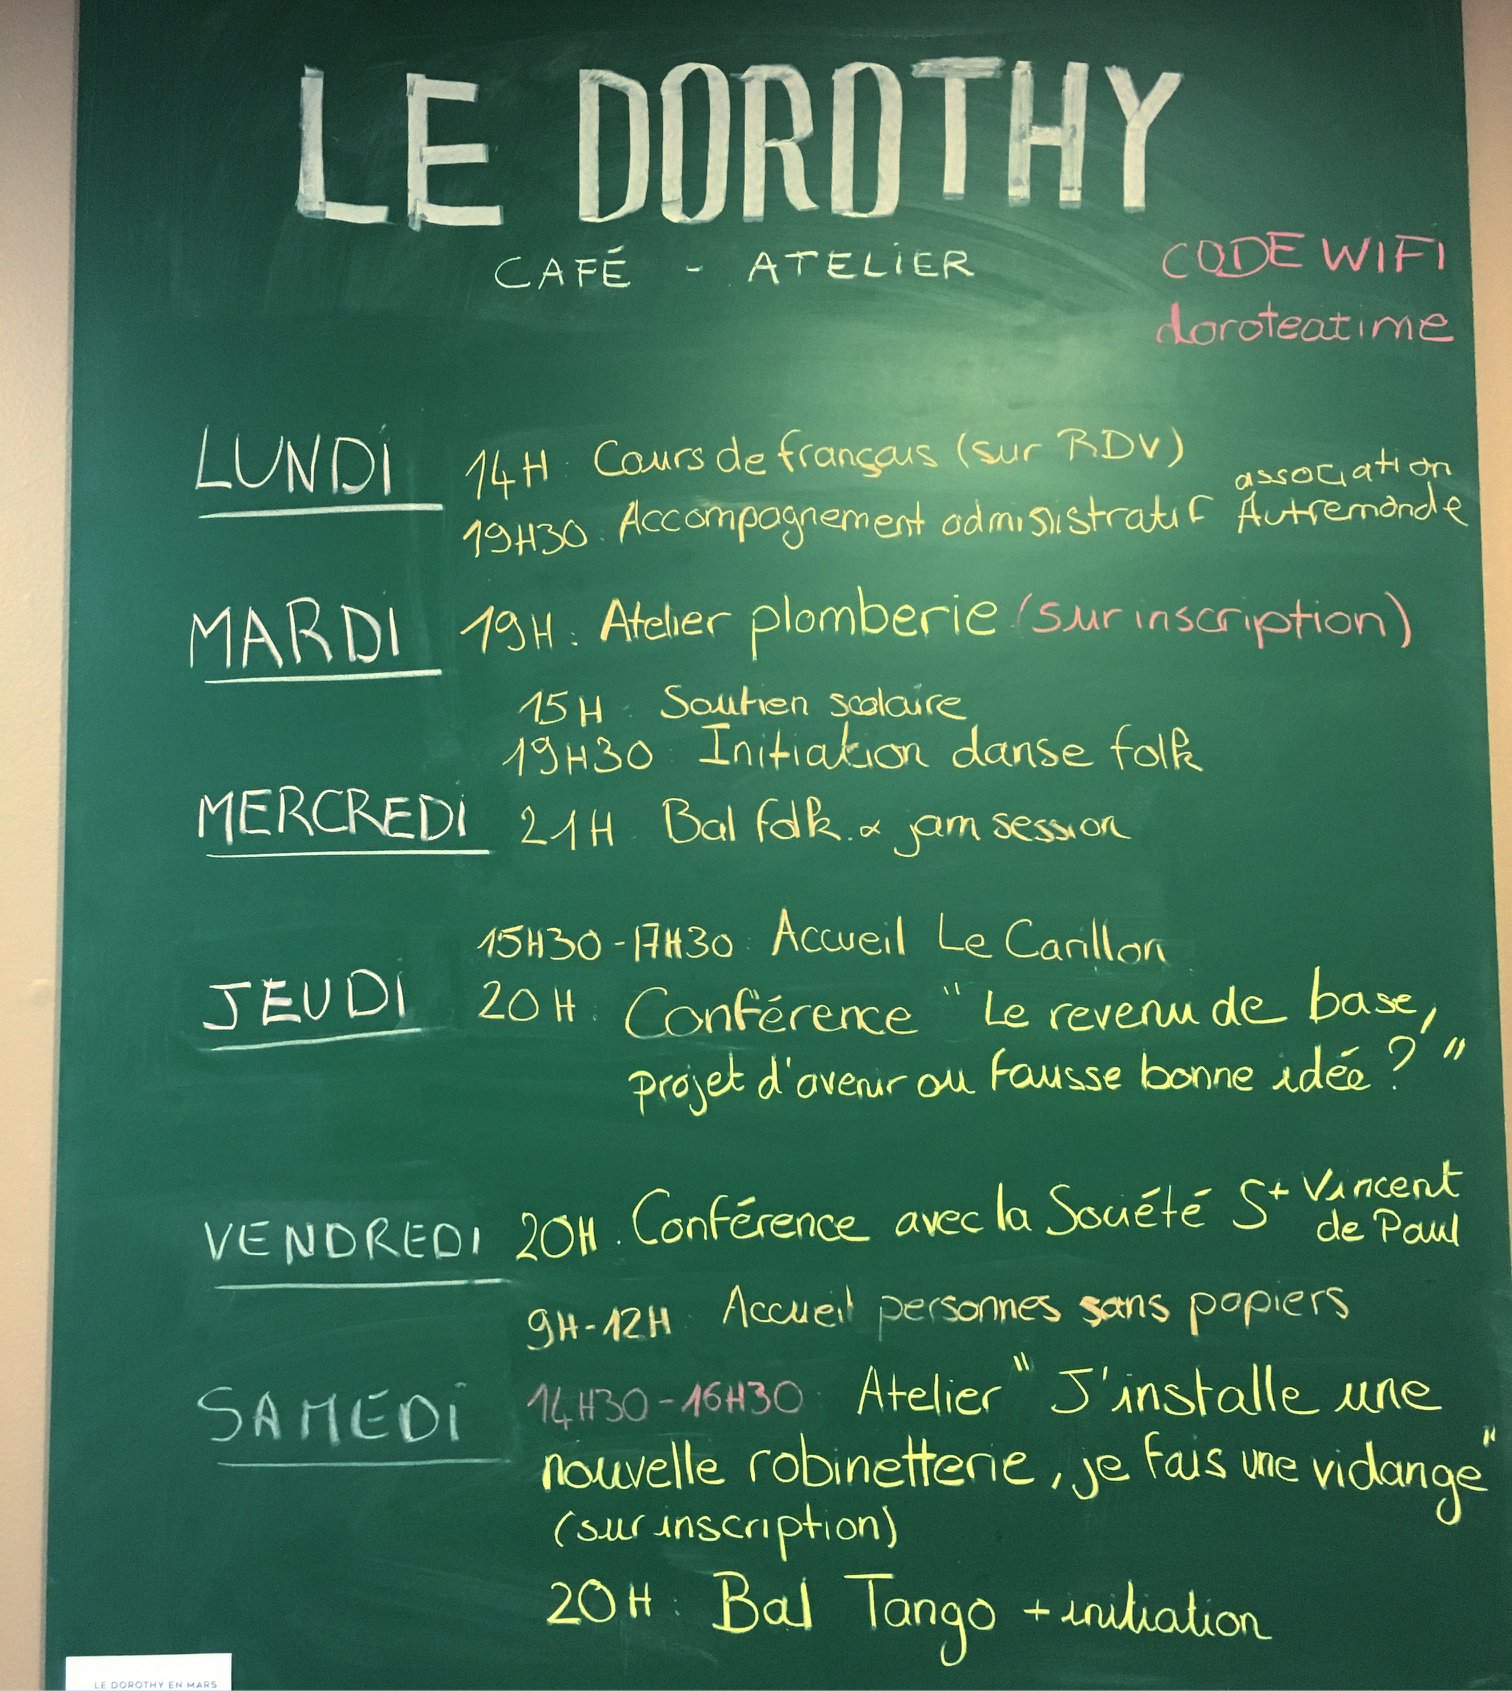 LE DOROTHY
CAFÉ - ATELIER
CODE WIFI
doroteatime
LUNDI
14H : Cours de français (sur RDV)
19H30 : Accompagnement administratif association Autremonde
MARDI
19H : Atelier plomberie (sur inscription)
MERCREDI
15H : Soutien scolaire
19H30 : Initiation danse folk
21H : Bal folk & jam session
JEUDI
15H30-17H30 : Accueil Le Carillon
20H : Conférence "Le revenu de base,
projet d'avenir ou fausse bonne idée ?"
VENDREDI
20H : Conférence avec la Société St Vincent
de Paul
SAMEDI
9H-12H : Accueil personnes sans papiers
14H30-16H30 : Atelier "J'installe une
nouvelle robinetterie, je fais une vidange"
(sur inscription)
20H : Bal Tango + initiation
LE DOROTHY EN MARS